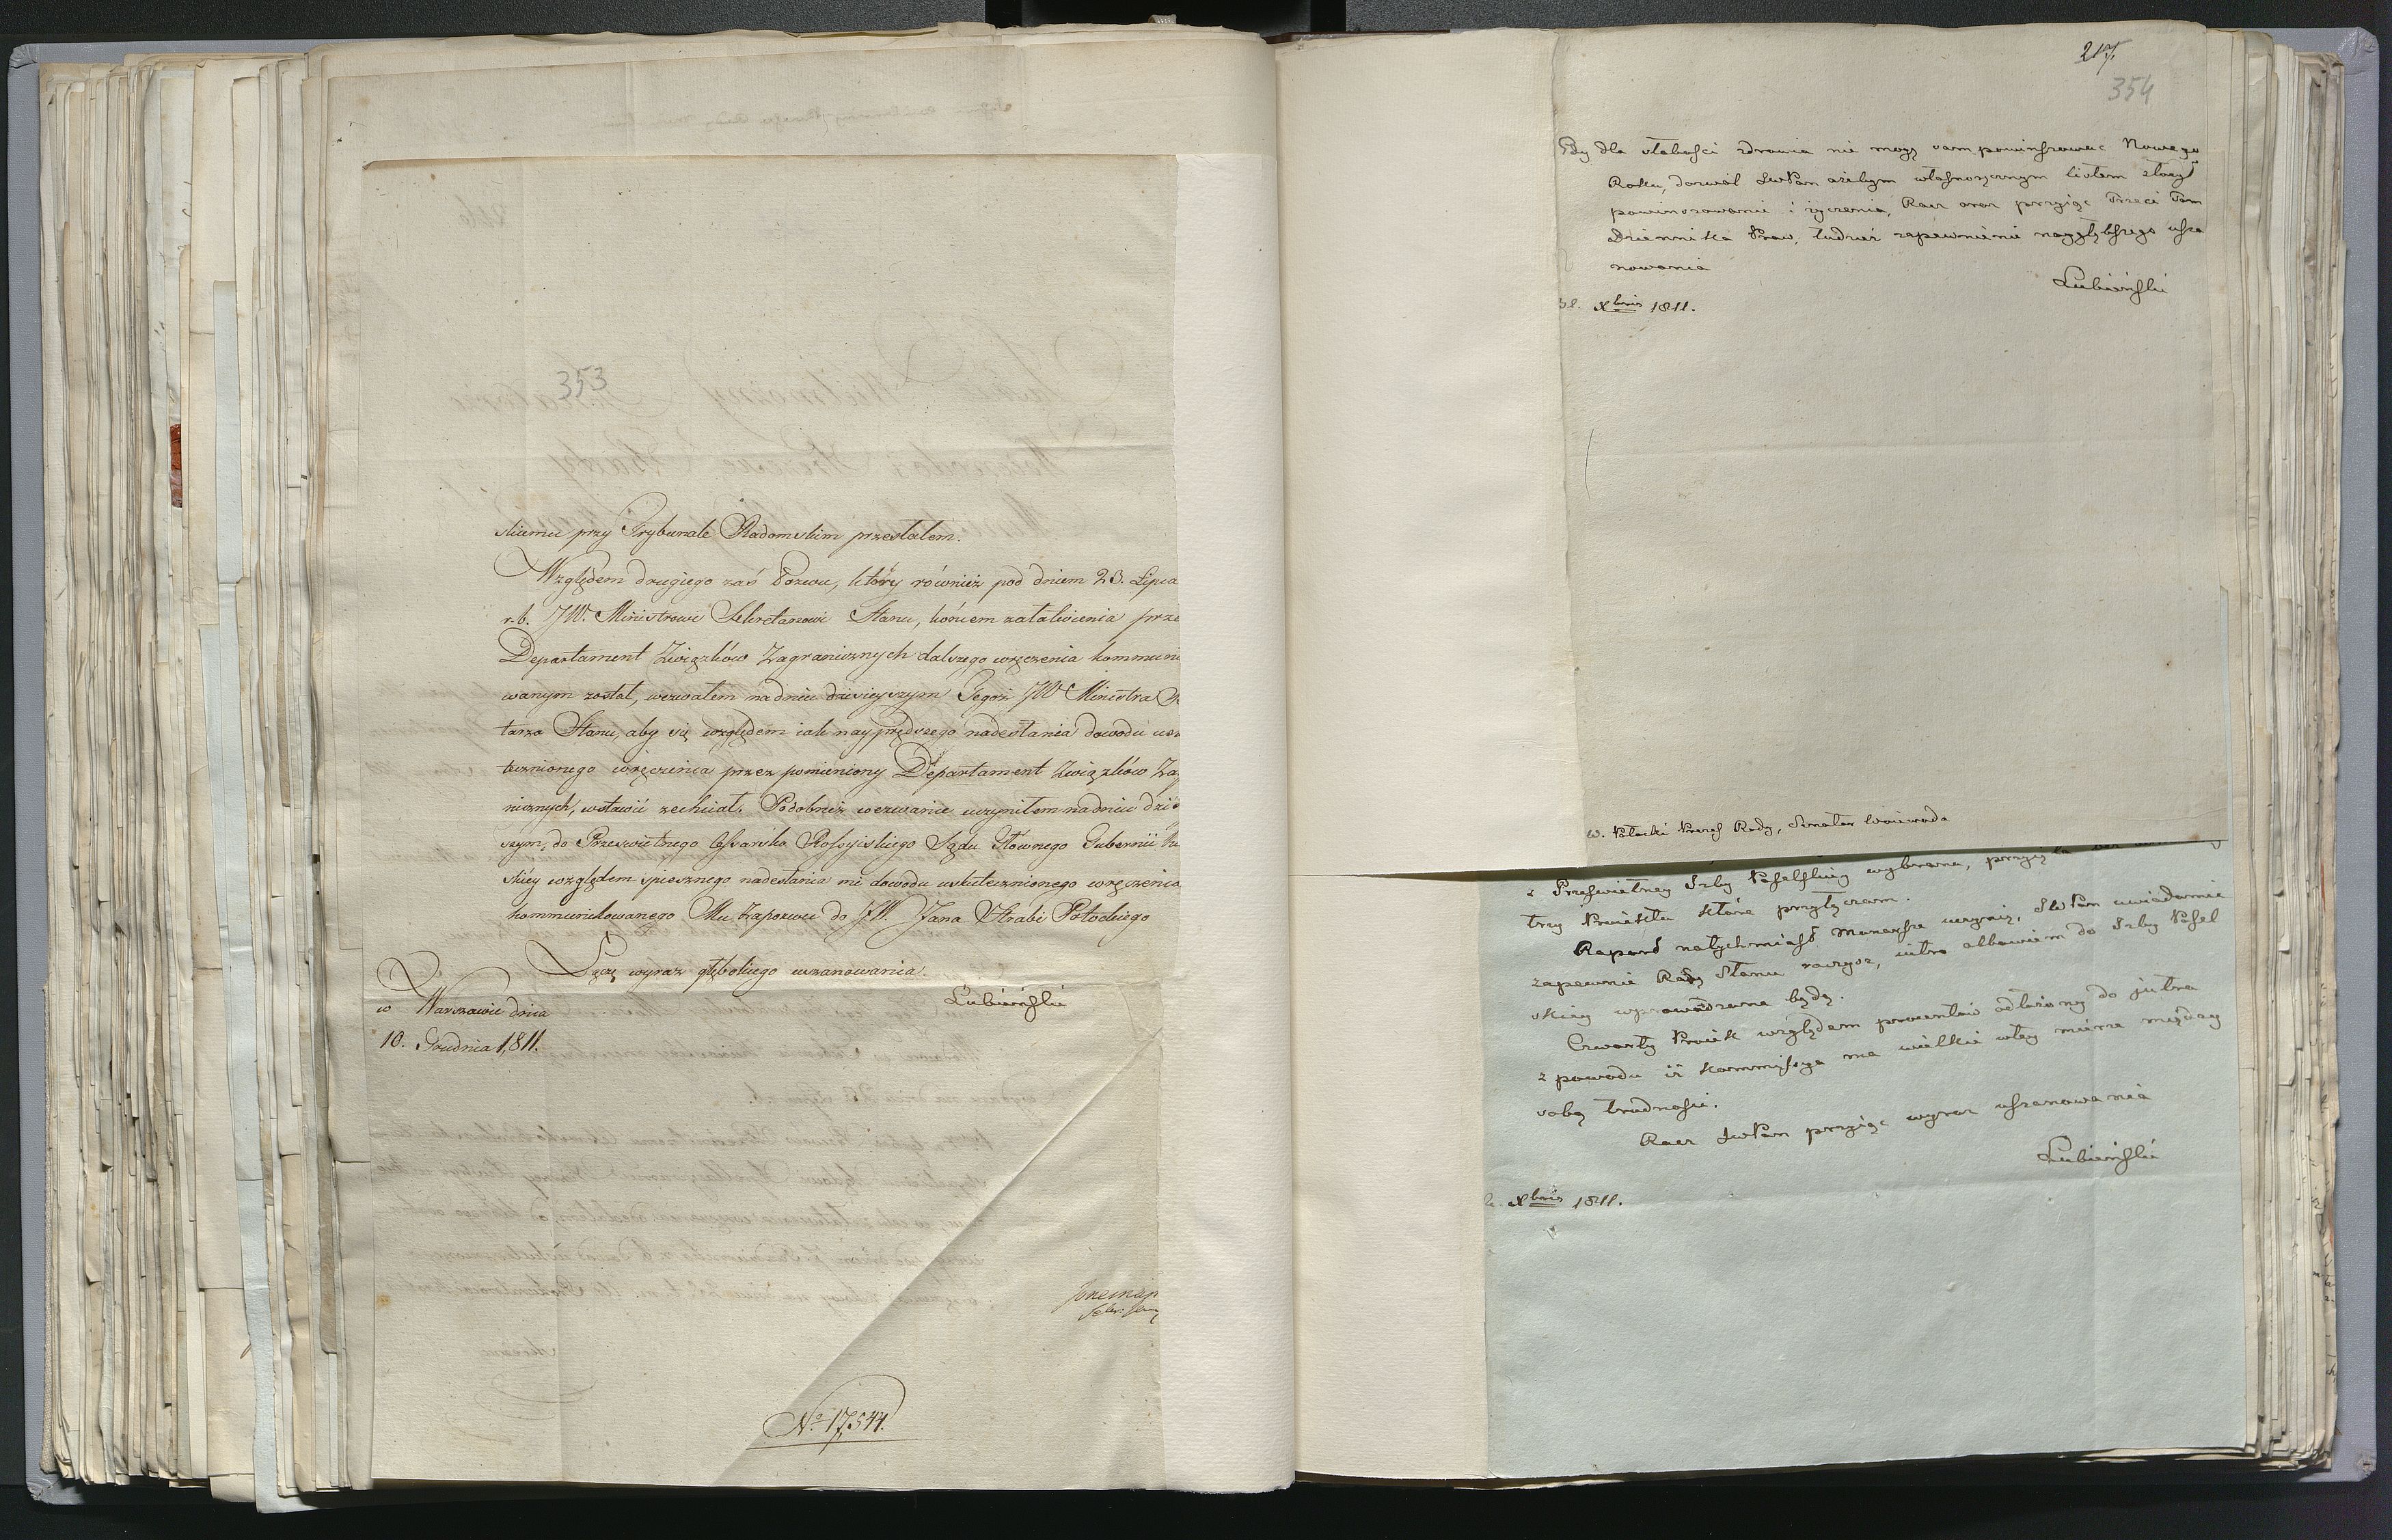 353
skiemu przy Trybunale Radomskim przesłałem.
Względem drugiego zaś Pozwu, który również pod dniem 23. Lipca
r. b. JW. Ministrowi Sekretarzowi Stanu, końcem załatwienia prze
Departament Związków Zagranicznych dalszego wręczenia kommuni
wanym został, wezwałem na dniu dzisieyszym Tegoż JW Ministra
tarza Stanu, aby się względem iak nayprędszego nadesłania dowodu
tecznionego wręczenia przez pomieniony Departament Związków Za
nicznych, wstawić zechciał. Podobnież wezwanie uczyniłem na dniu dzi
szym, do Prześwietnego Cesarsko Rossyiskiego Sądu Głównego Gubernii
skiey względem spiesznego nadesłania mi dowodu uskutecznionego wręczenia
kommunikowanego Mu Zapozwu do JW. Jana Hrabi Potockiego
Łączę wyraz głębokiego uszanowania.
Łubieński
w Warszawie dnia
10. Grudnia 1811.
No 17,544.
217.
354
Gdy dla słabości zdrowia nie mogę sam powinszować Nowego
Roku, dozwól JWPan ażebym własnoręcznym listem złożył
powinszowanie i życzenia, Racz oraz przyiąć Trzeci Tom
Dziennika Praw, tudzież zapewnienie naygłębszego usza
nowania
Łubieński
31. Xbris 1811.
W. Potocki Prezes Rady, Senator Woiewoda
z Prześwietney Izby Poselskiey wybrana, przyięła
trzy Proiekta które przyłączam.
Raport natychmiast Monarsze uczynię, JWPan uwiadomić
zapewnie Radę Stanu raczysz, iutro albowiem do Izby Posel
skiey wprowadzone będą.
Czwarty Proiekt względem procentów odłożony do jutra
z powodu iż Kommissya ma wielkie w tey mierze między
sobą trudności.
Racz JWPan przyiąć wyraz uszanowania
Łubieński
Xbris 1811.